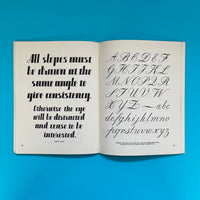 All slopes must
be drawn at the
same angle to
give consistency.
Otherwise the eye
will be distracted
and cease to be
interested.
ABCDEF
GHIJKL
MNOPQR
STUV
WXYZ
abc
defghijklmno
pqrstuvwxyz